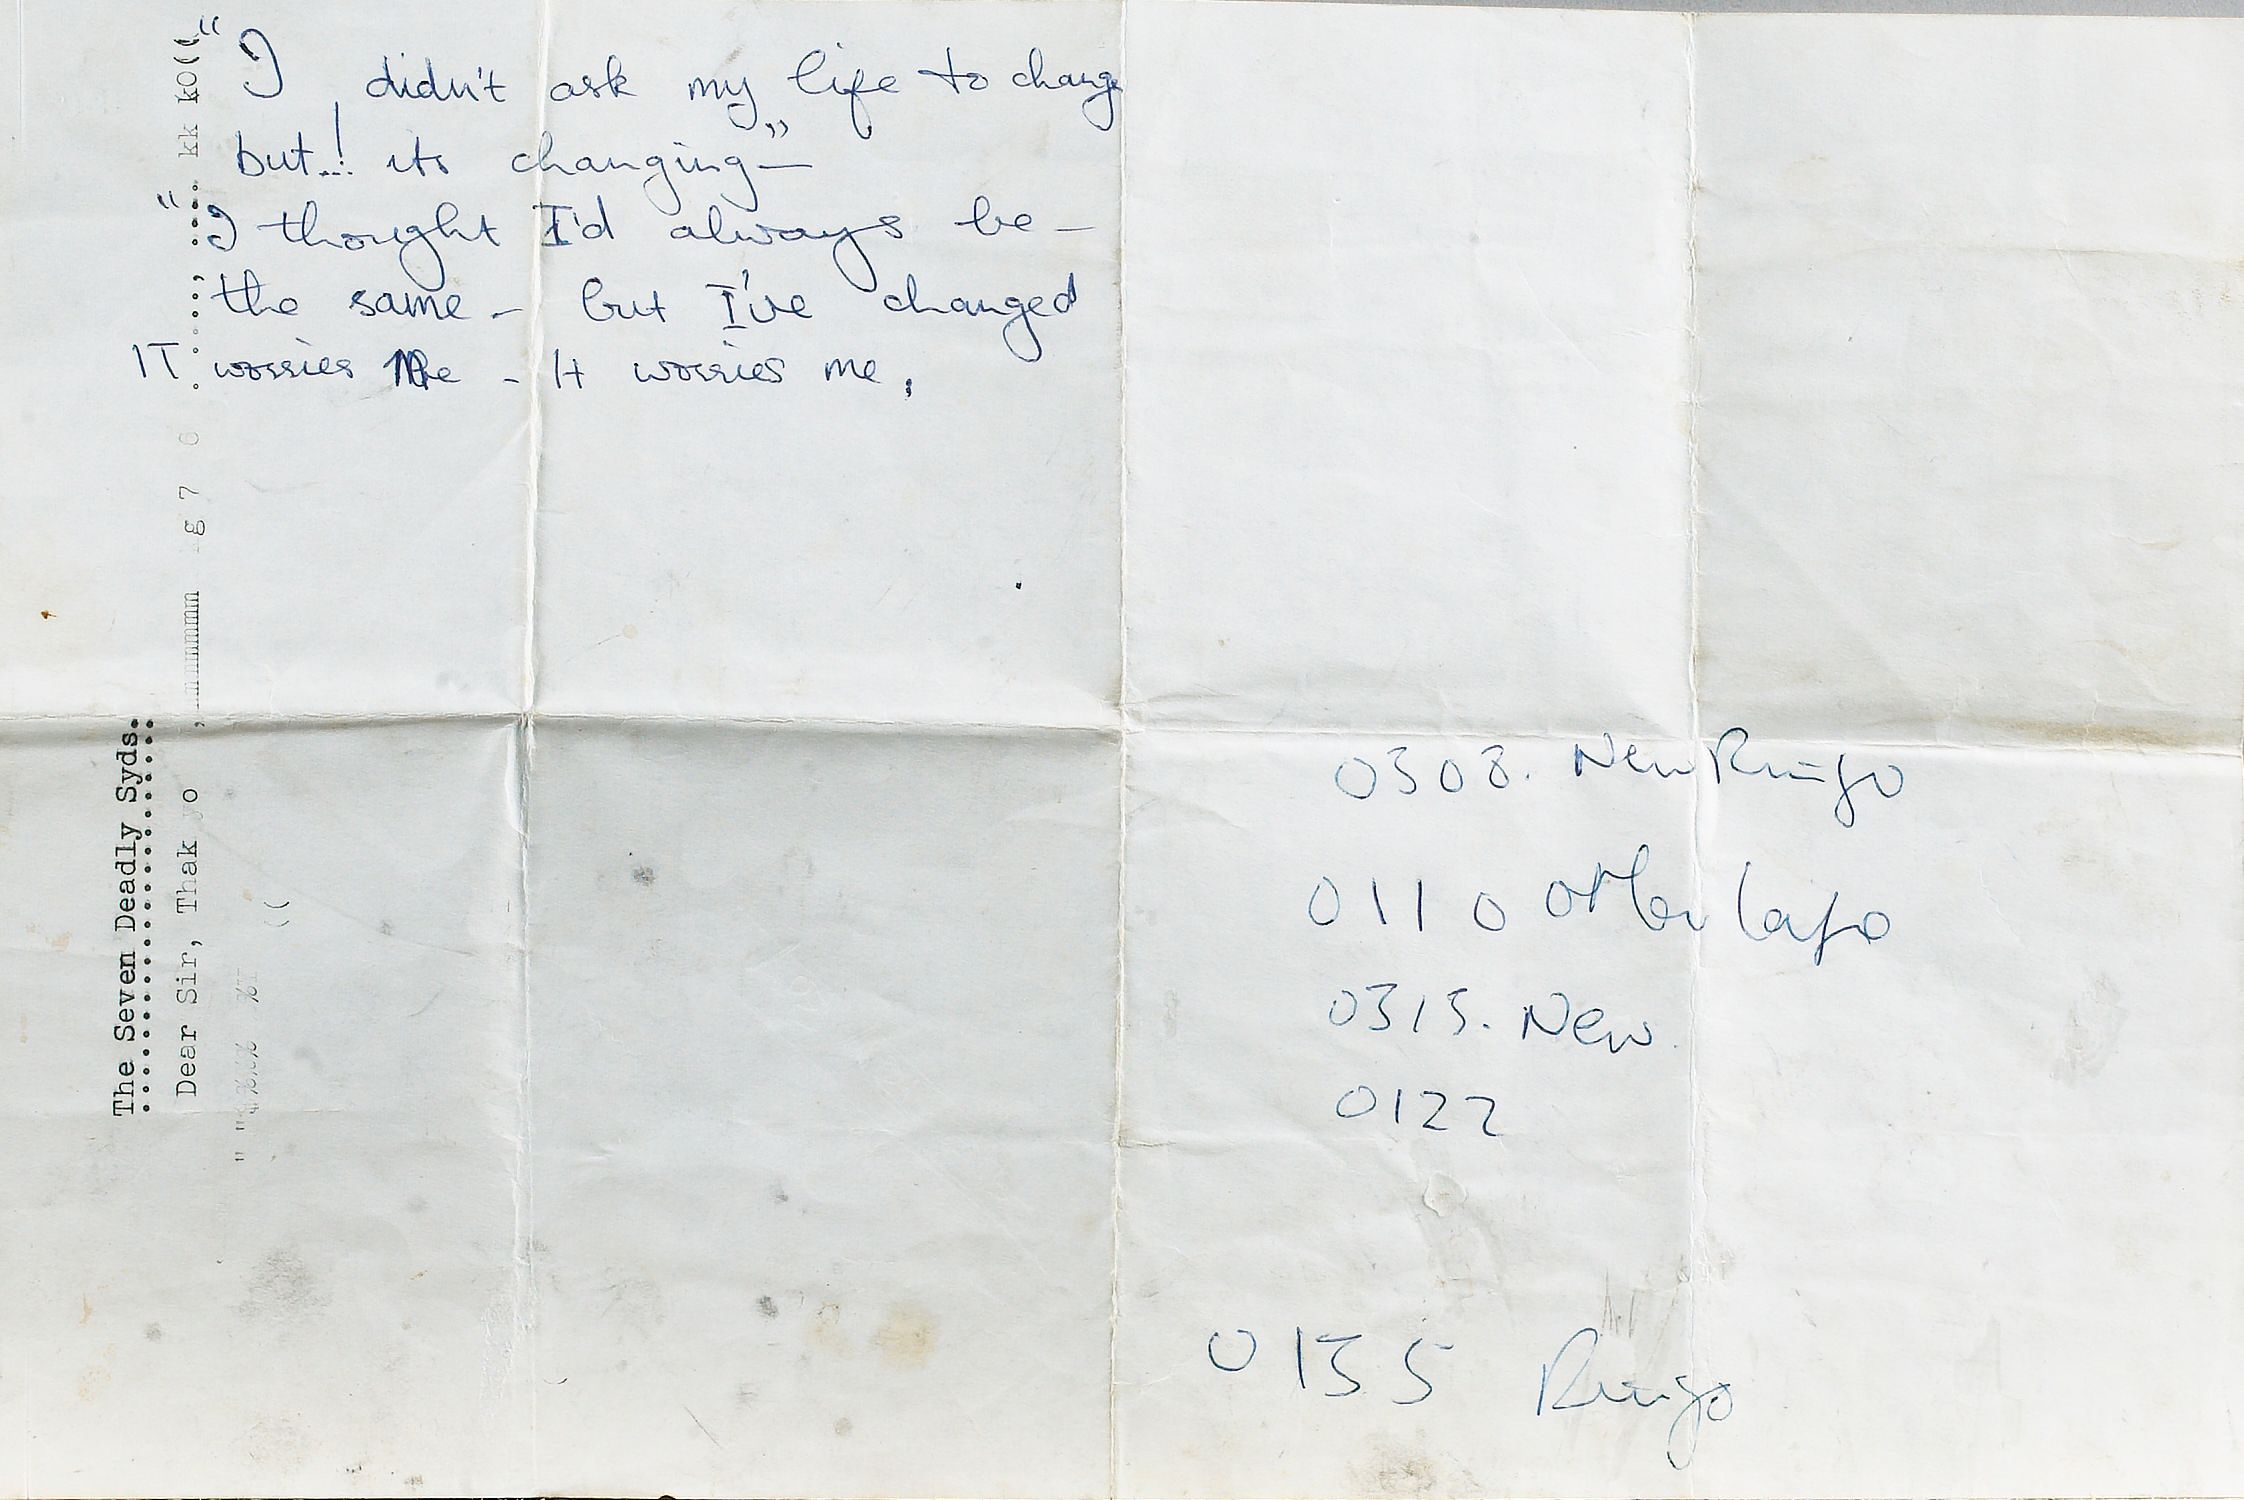 "I didn't ask my life to change
but...! its changing—"
"I thought I'd always be –
the same – but I've changed
IT worries Me – It worries me,
The Seven Deadly Syds.
Dear Sir, Thak yo , mmmmmmm g 7 6 kk kO((
0308. New Ringo
0110 Other
0315. New
0122
0155 Ringo